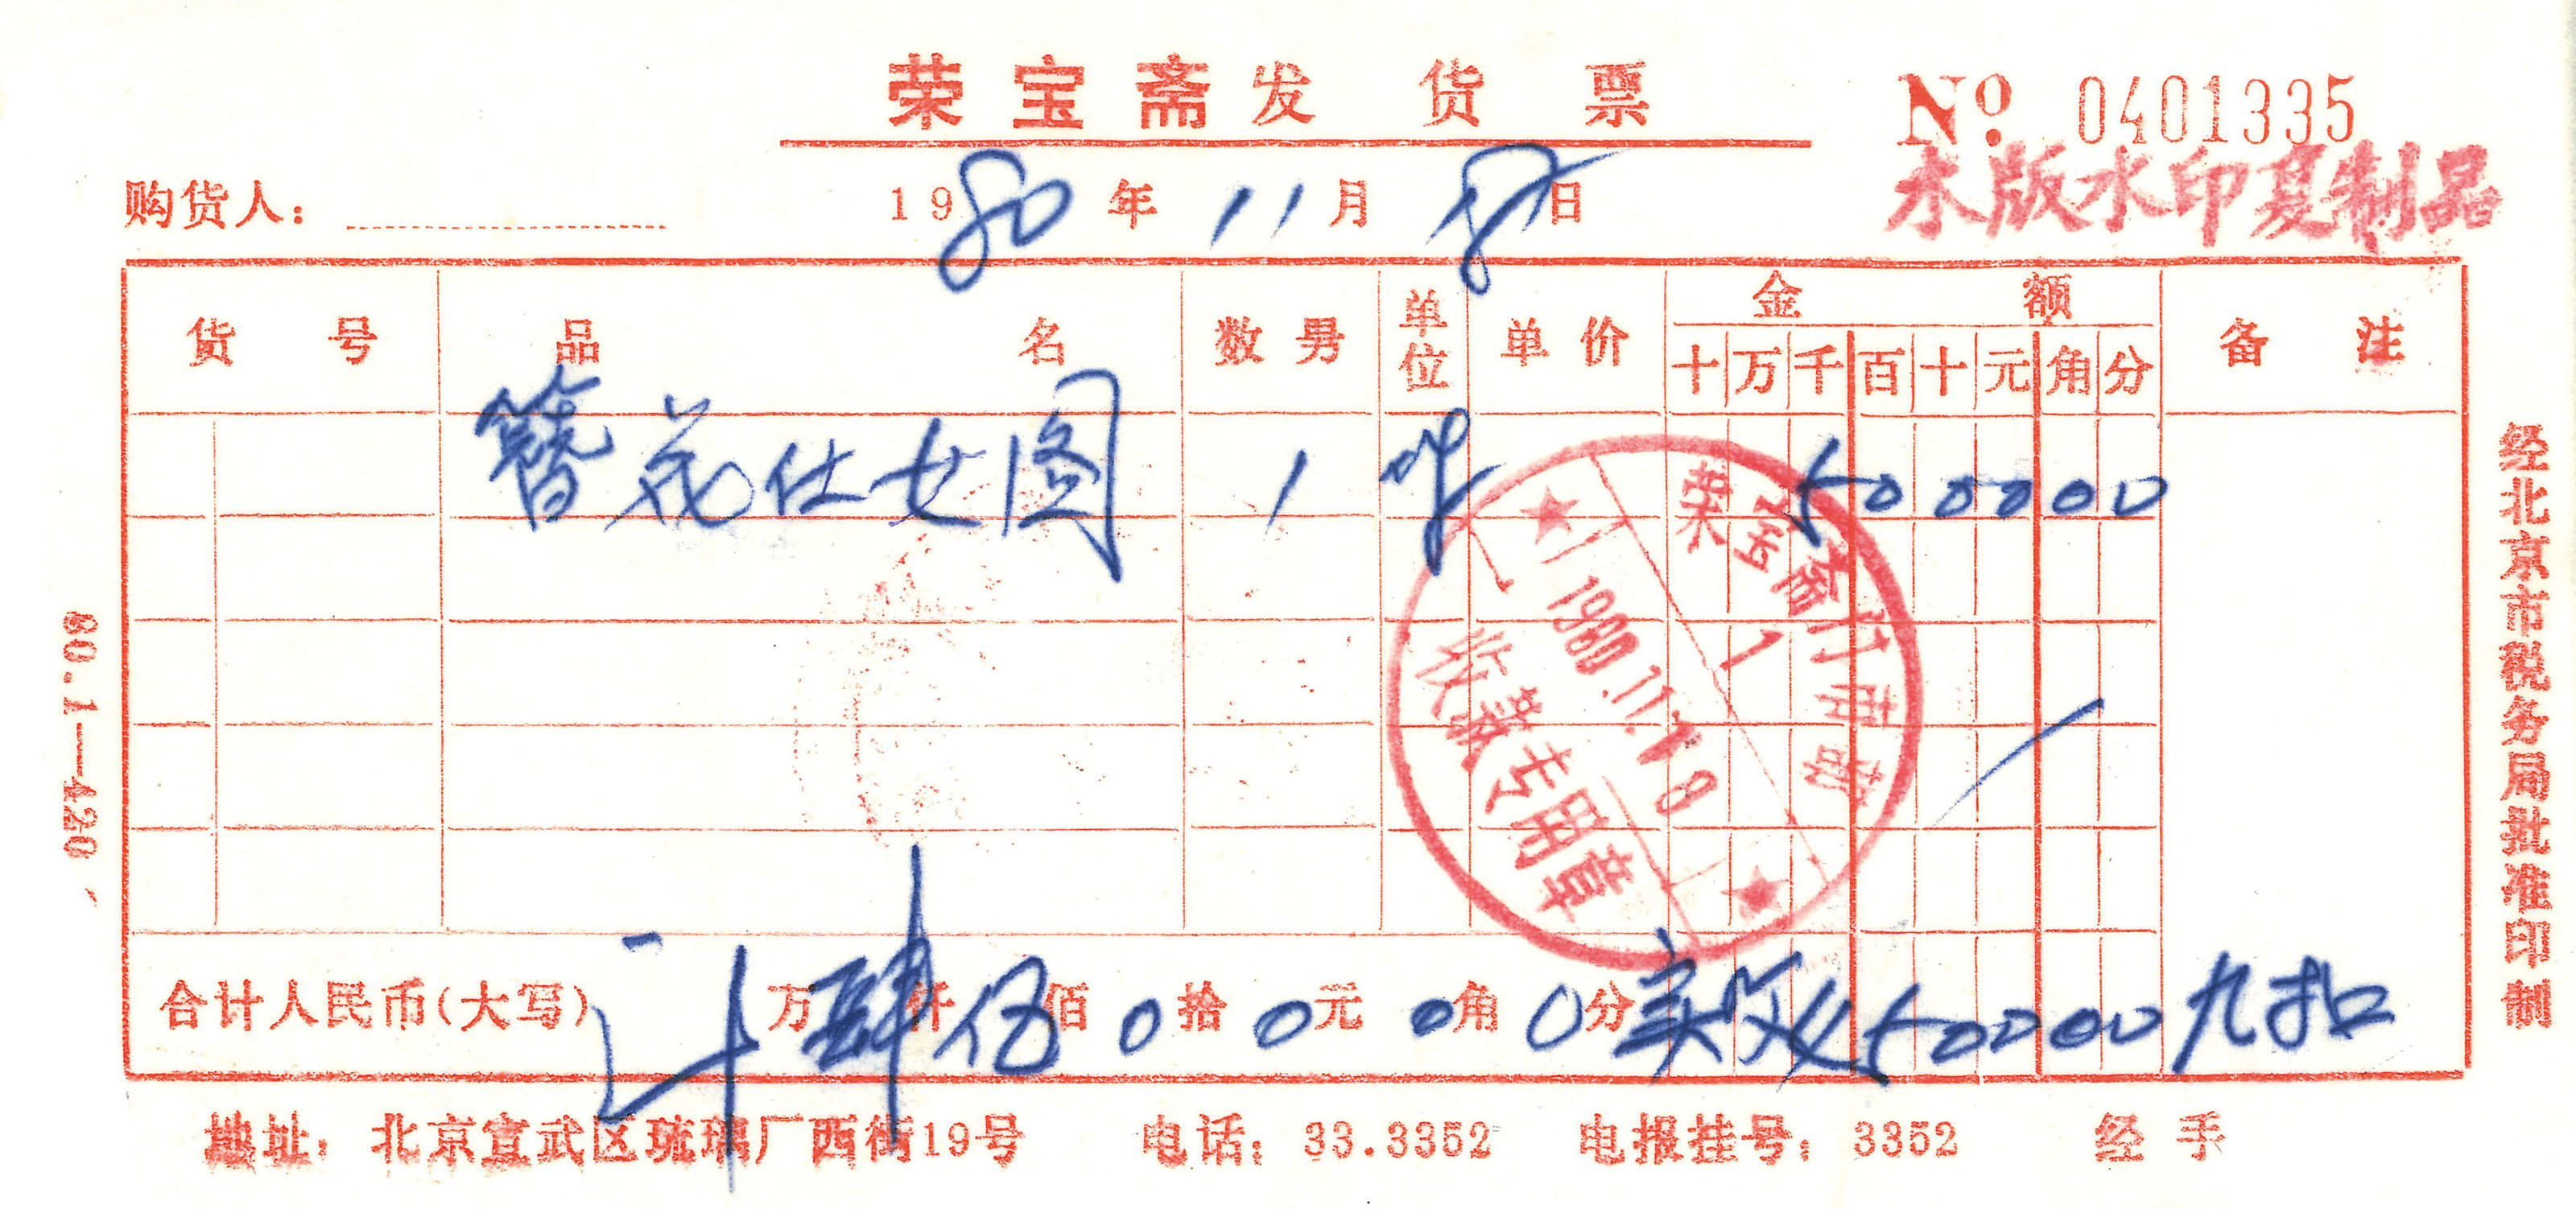 荣宝斋发货票
No. 0401335
木版水印复制品
购货人：
1980年11月18日
货号 品名 数男 单位 单价 金额 备注
十万千百十元角分
簪花仕女图 1 500000
荣宝斋门市部
1
1980.11.18
收款专用章
合计人民币(大写) 计 万肆仟伍佰0拾0元0角0分实收450000九扣
地址：北京宣武区琉璃厂西街19号 电话：33.3352 电报挂号：3352 经手
80.1—420
经北京市税务局批准印制